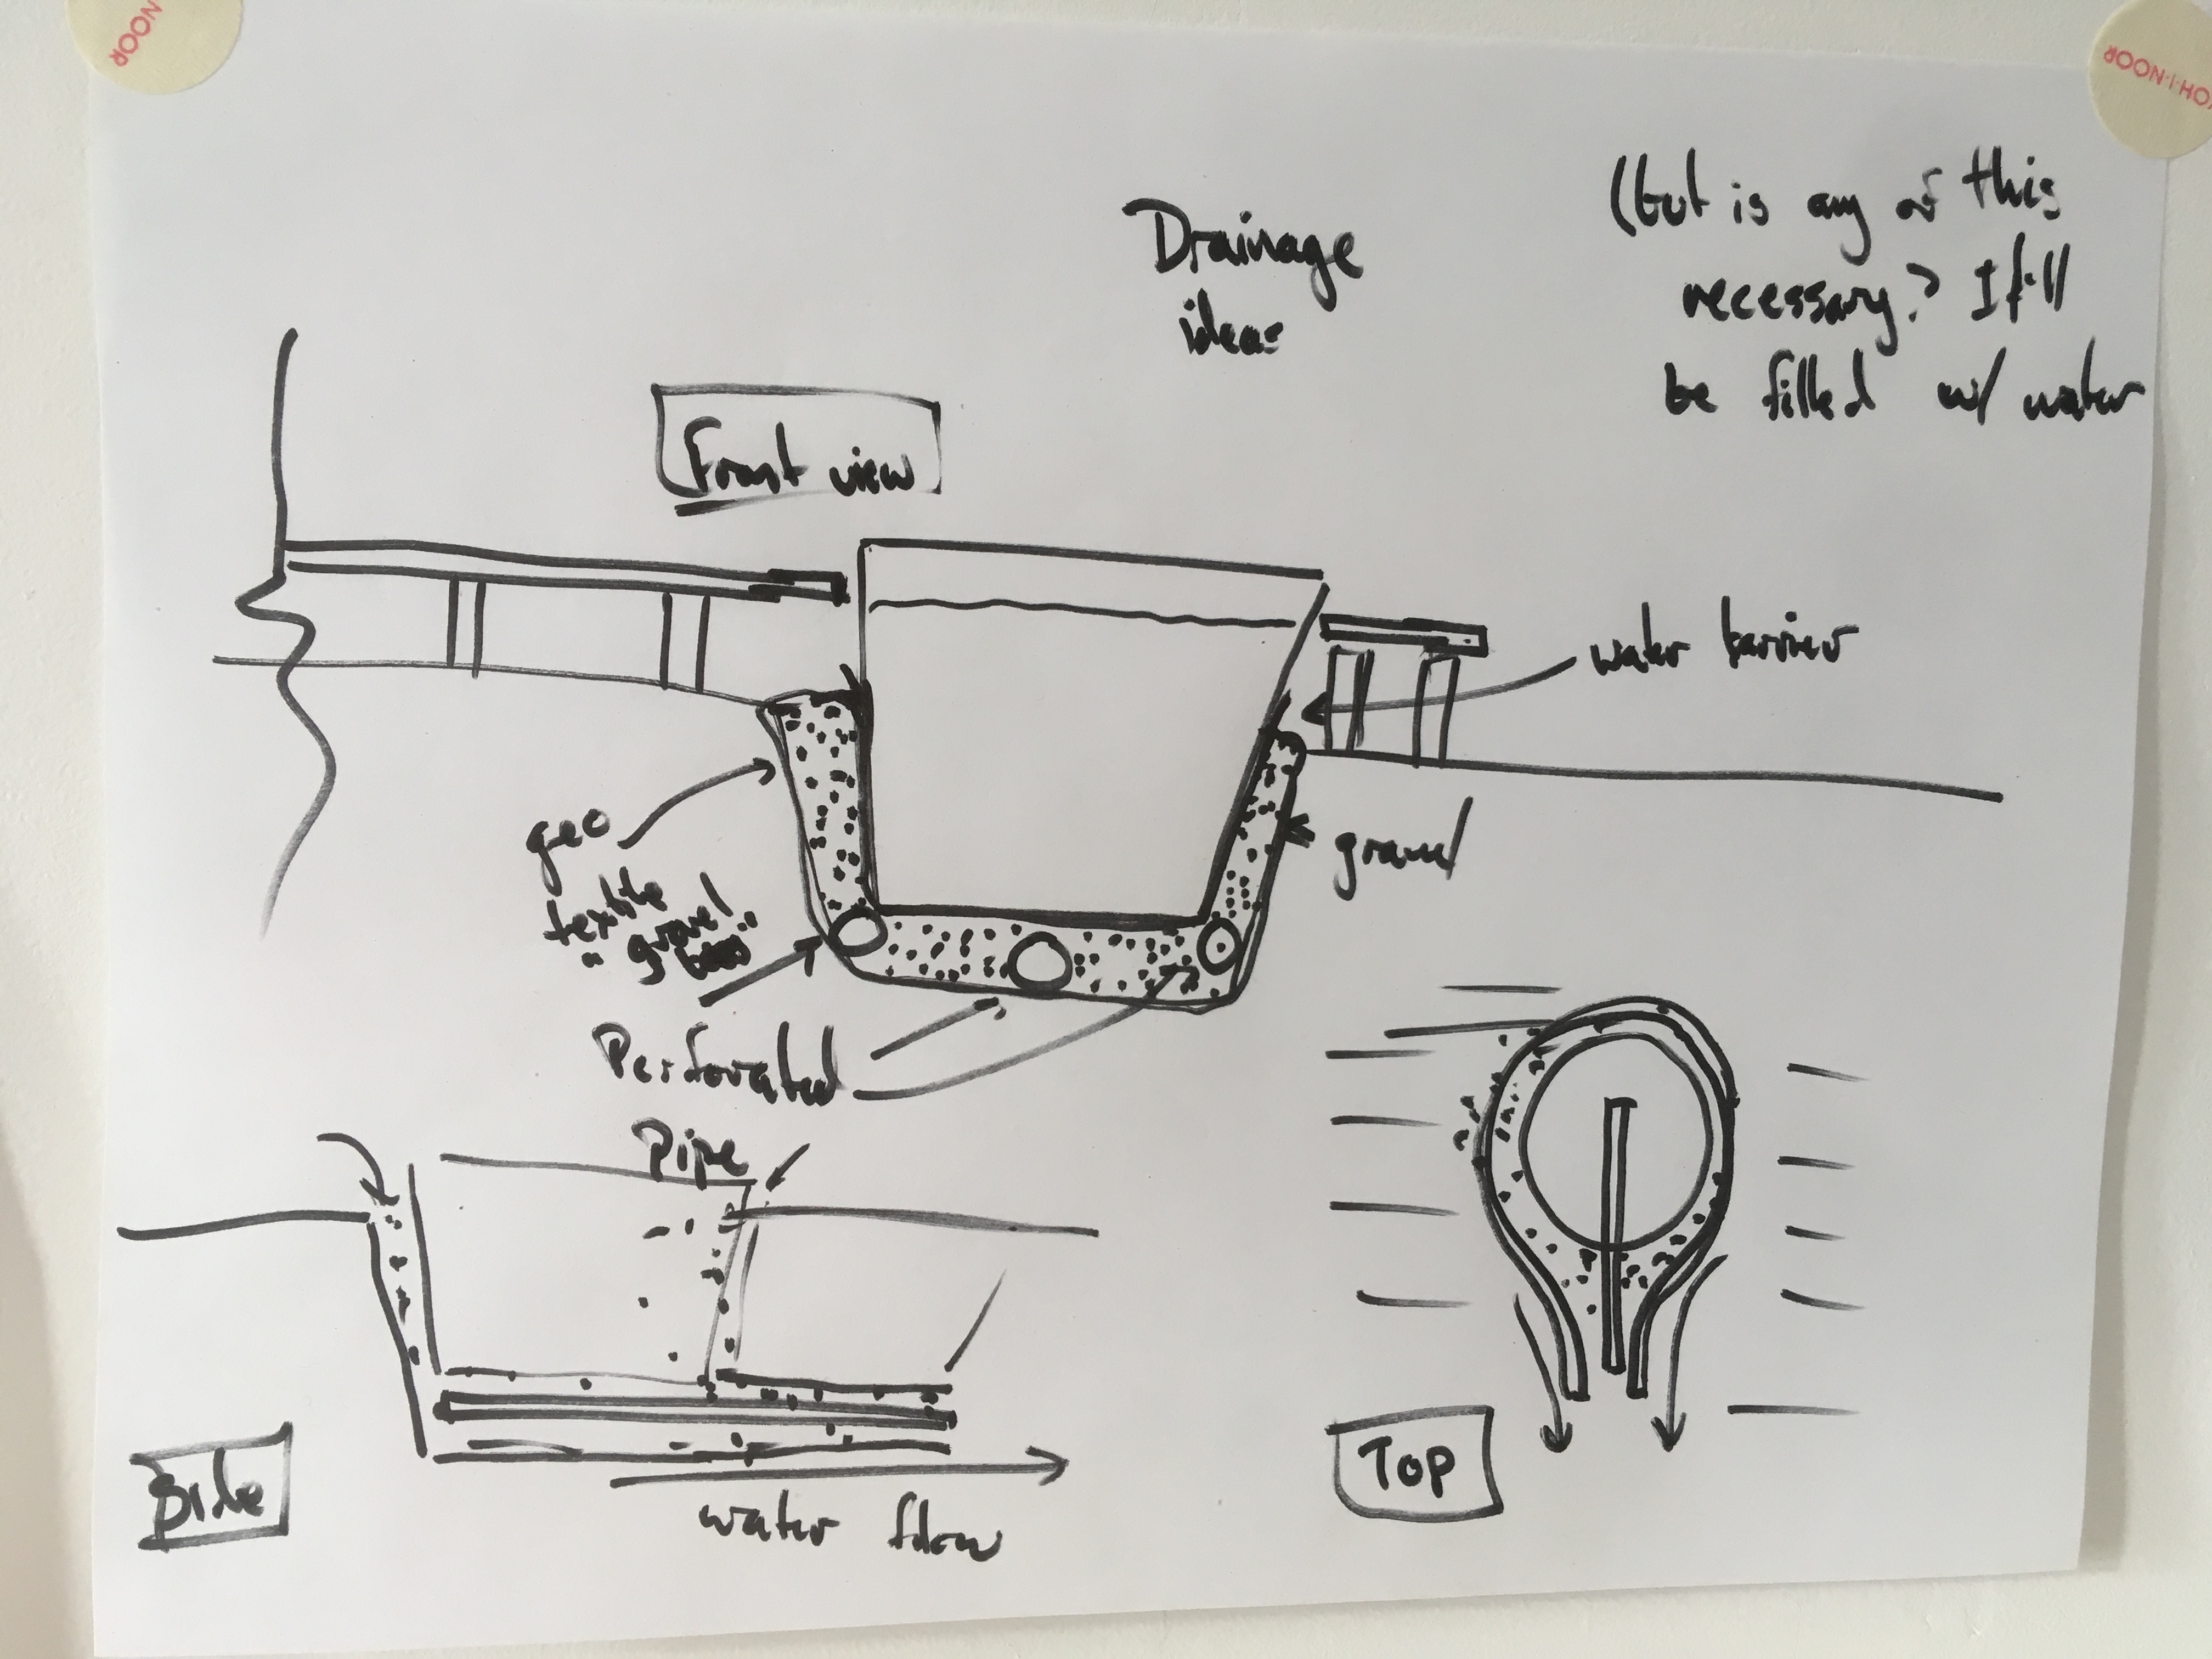 NOOR
KOH-I-NOOR
Drainage
ideas
(but is any of this
necessary? It'll
be filled w/ water
Front view
water barrier
geo
textile
"gravel
gravel
Perforated
Pipe
Side
water flow
Top